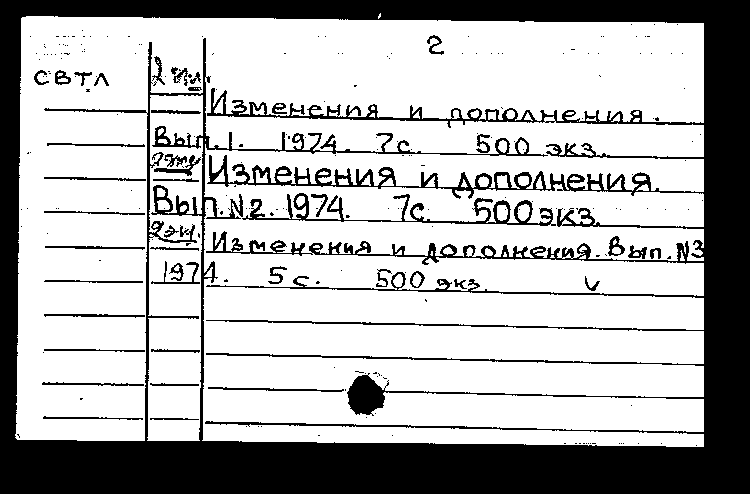 2
СВТЛ
Изменения и дополнения.
Вып.1. 1974. 7с. 500 экз.
Изменения и дополнения.
Вып.N2. 1974. 7с. 500 экз.
2 экз.
Изменения и дополнения. Вып. N3
1974. 5с. 500 экз. V